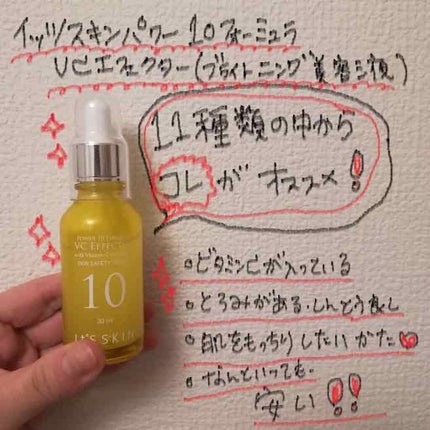 イッツスキンパワー10フォーミュラ
VCエフェクター(ブライトニング美容液)
11種類の中から
コレがオススメ!
POWER 10 FORMULA
VC EFFECTOR
10
30 ml
It's SKIN
・ビタミンCが入っている
・とろみがある・しんとう良し
・肌をもっちりしたいかた♥
・なんといっても・
安い!!